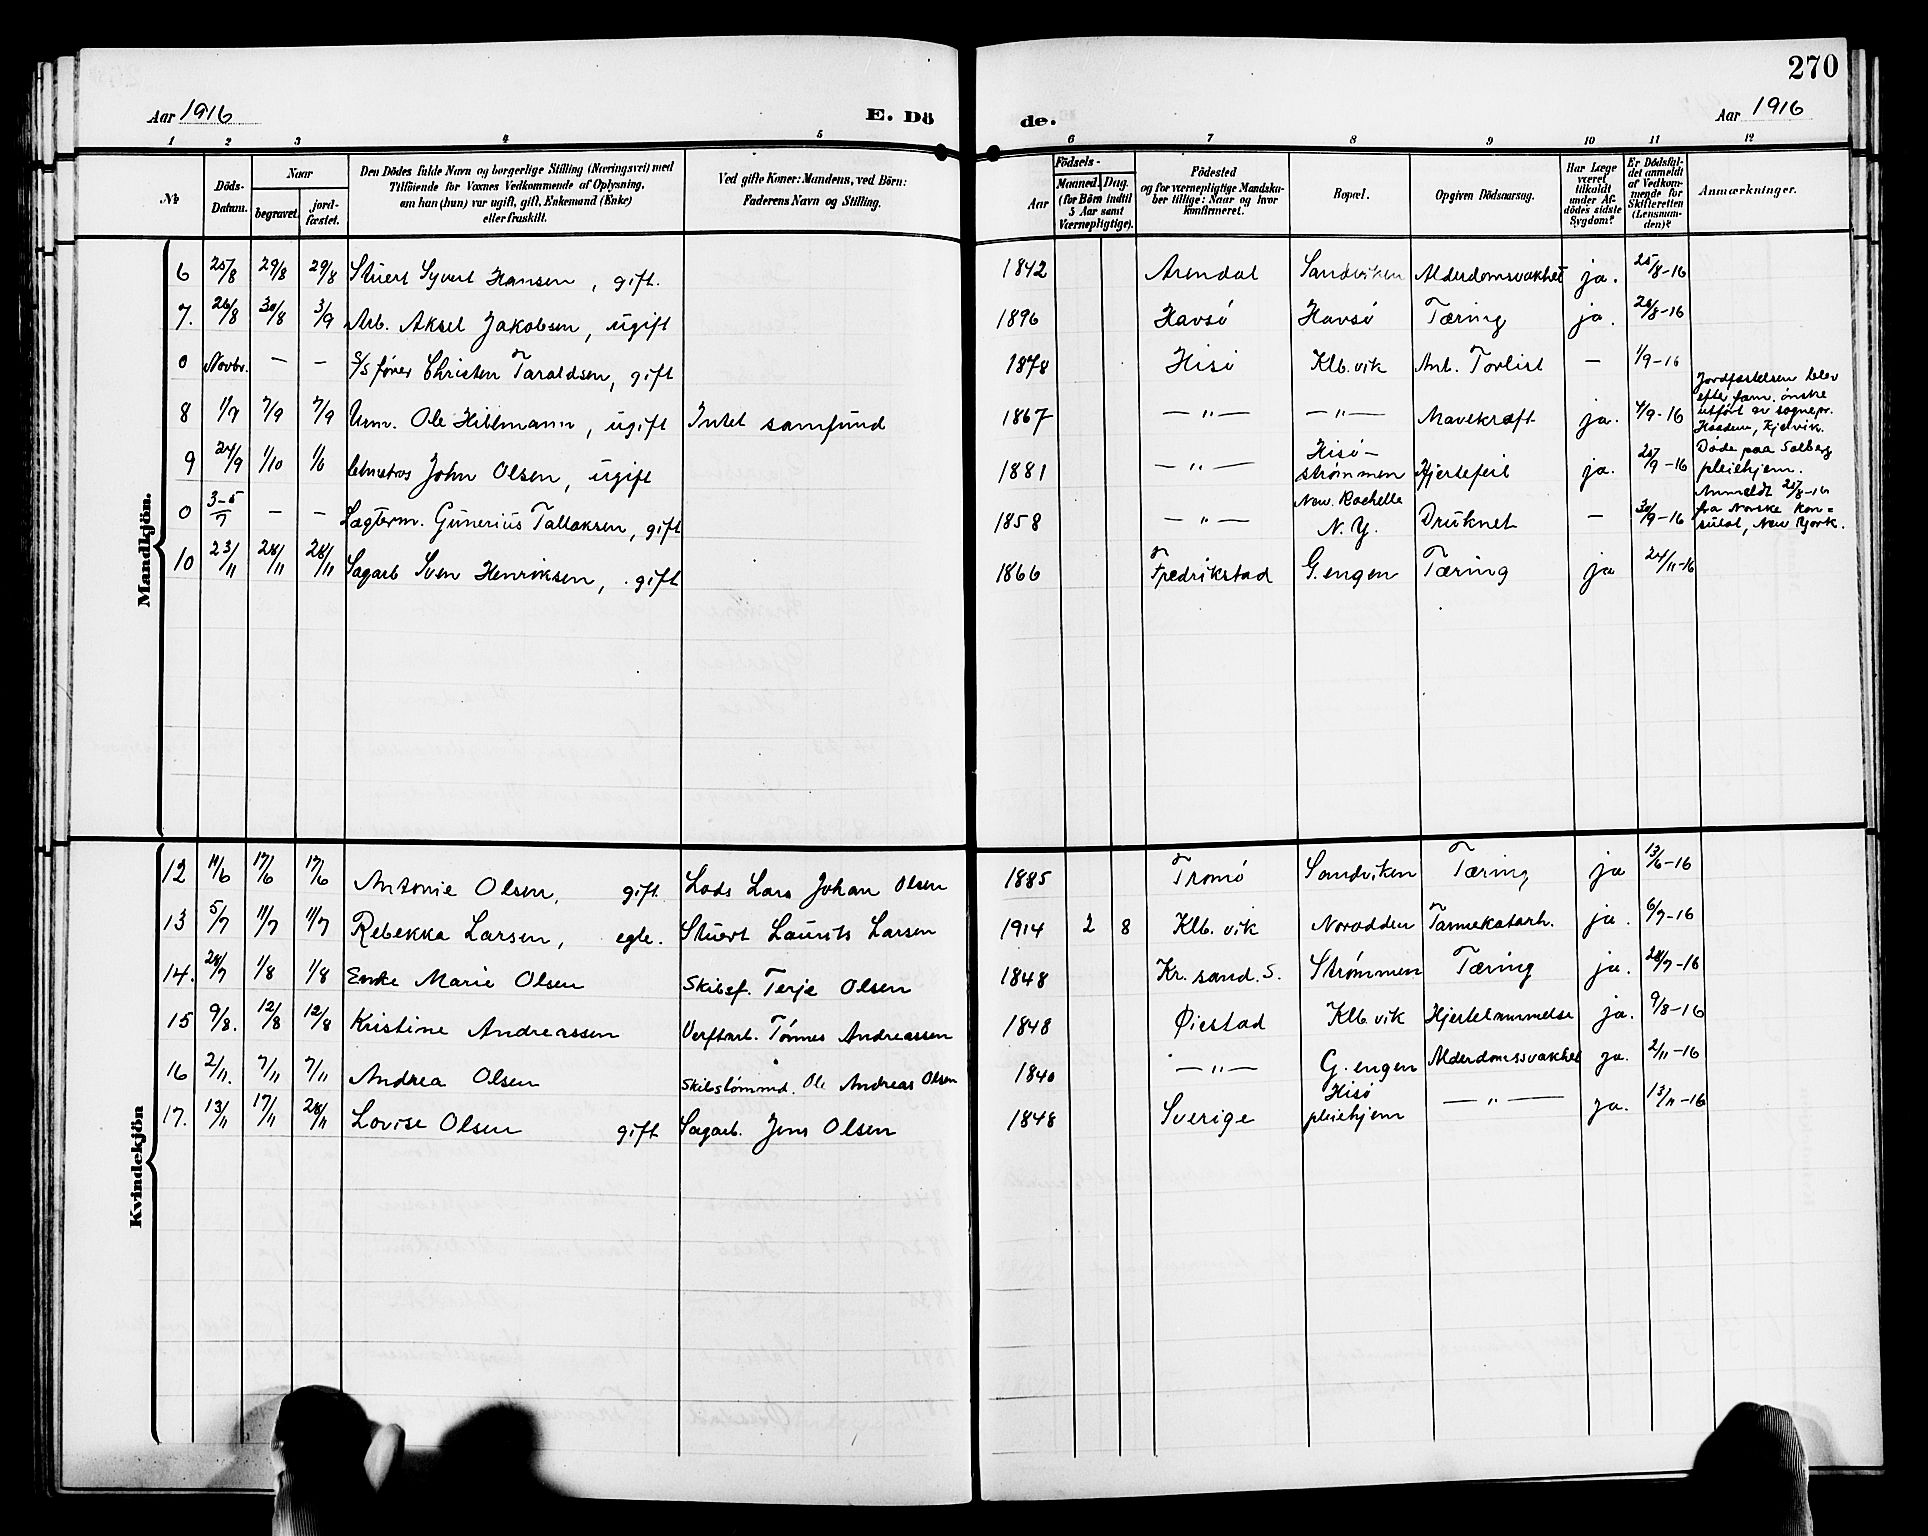 270
Aar 1916
E. Dö
de.
Aar 1916
1 2 3 4 5 6 7 8 9 10 11 12
№
Döds-Datum.
Naar
begravet.
jord-fæstet.
Den Dödes fulde Navn og borgerlige Stilling (Næringsvei) med
Tilföiende for Voxnes Vedkommende af Oplysning,
om han (hun) var ugift, gift, Enkemand (Enke)
eller fraskilt.
Ved gifte Koner: Mandens, ved Börn:
Faderens Navn og Stilling.
Födsels-
Aar
Maaned. Dag.
(for Börn indtil
5 Aar samt
Værnepligtige).
Födested
og for værnepligtige Mandska-
ber tillige: Naar og hvor
konfirmeret.
Bopæl.
Opgiven Dödsaarsag.
Har Læge
været
tilkaldt
under Af-
dödes sidste
Sygdom?
Er Dödsfal-
det anmeldt
af Vedkom-
mende for
Skifteretten
(Lensman-
den)?
Anmærkninger.
Mandkjön.
6 25/8 29/8 29/8 Stuert Syvert Hansen, gift. 1842 Arendal Sandviken Alderdomsvakhet ja. 25/8-16
7. 26/8 30/8 3/9 Arb. Aksel Jakobsen, ugift 1896 Havsö Havsö Tæring ja. 26/8-16
0 Novbr. — — S/S fører Christen Taraldsen, gift 1878 Hisö Klb. vik Ant. Forlist — 1/9-16
8 1/9 7/9 7/9 Ole Hillmann, ugift Intet samfund 1867 —"— —"— Mavekræft ja. 4/9-16
Jordfæstelsen blev
efter fam. ønske
utført av sognepr.
9 24/9 1/10 John Olsen, ugift 1881 —"— Hisö-
strømmen Hjertefeil ja. 25/9-16
Døde paa Solberg
pleiehjem.
0 3-5/7 — — Lægterm. Gunerius Tallaksen, gift 1858 —"— New. Rochelle
N. Y. Druknet — 30/9-16
Anmeldt 25/8-16
fra Norske Kon=
sulat, New York.
10 23/11 28/11 28/11 Sagarb Sven Henriksen, gift 1866 Fredrikstad G. engen Tæring ja 24/11-16
Kvindekjön
12 11/6 17/6 17/6 Antonie Olsen, gift Lods Lars Johan Olsen 1885 Tromö Sandviken Tæring ja 13/6-16
13 5/7 11/7 11/7 Rebekka Larsen, egte. Stuert Laurits Larsen 1914 2 8 Klb. vik Norodden Tarmekatarh. ja. 6/7-16
14. 28/7 1/8 1/8 Enke Marie Olsen Skibsf. Terje Olsen 1848 Kr. sand. S. Strømmen Tæring ja. 28/7-16
15 9/8. 12/8 12/8 Kristine Andreassen Verftarb. Tönnes Andreassen 1848 Øiestad Klb. vik Hjertelammelse ja. 9/8-16
16 2/11. 7/11 7/11 Andrea Olsen Skibstömmd. Ole Andreas Olsen 1840 —"— G. engen Alderdomssvakhet ja. 2/11-16
17. 13/11 17/11 28/11 Lovise Olsen gift Sagarb. Jens Olsen 1848 Sverige Hisö
pleiehjem —"— ja. 13/11-16